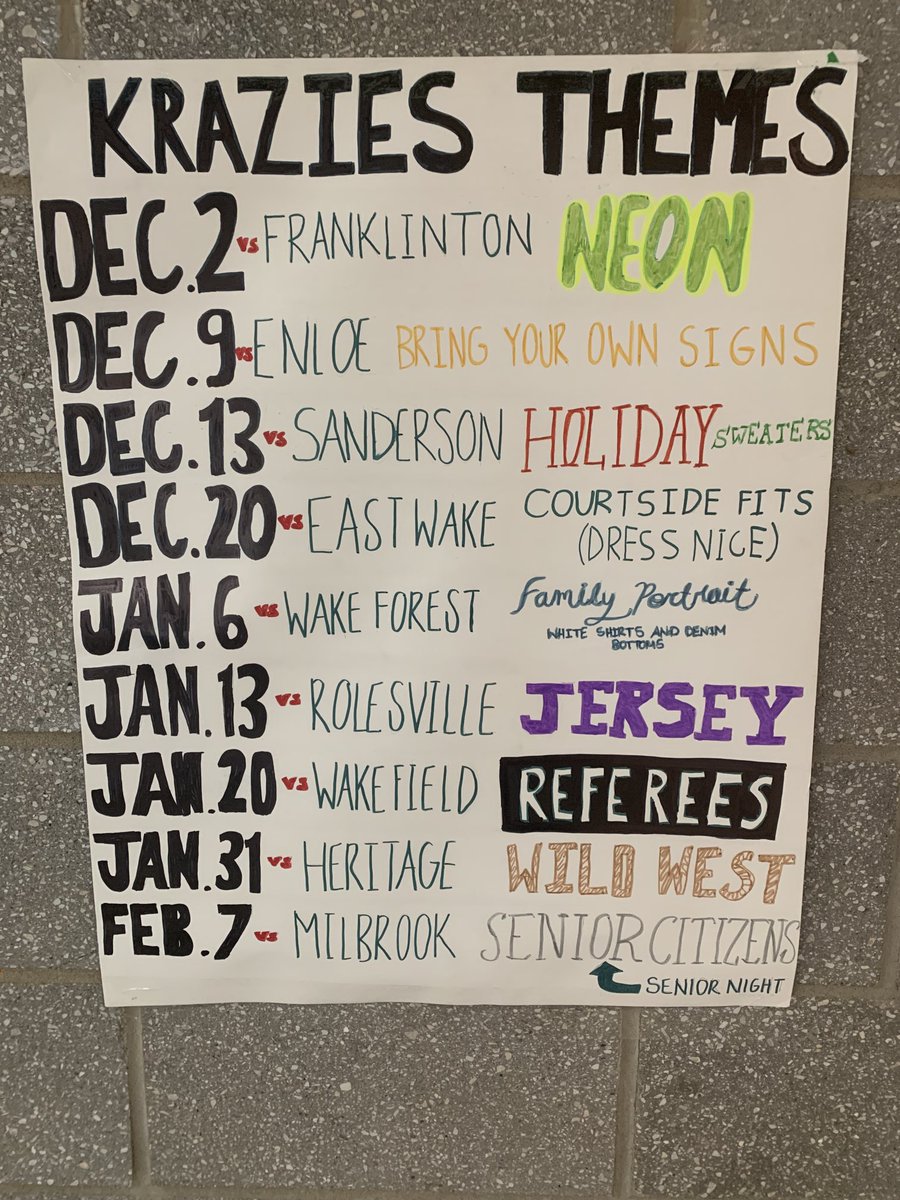 KRAZIES THEMES
DEC. 2 VS FRANKLINTON NEON
DEC. 9 VS ENLOE BRING YOUR OWN SIGNS
DEC. 13 VS SANDERSON HOLIDAY SWEATERS
DEC. 20 VS EAST WAKE COURTSIDE FITS
(DRESS NICE)
JAN. 6 VS WAKE FOREST Family Portrait
WHITE SHIRTS AND DENIM
BOTTOMS
JAN. 13 VS ROLESVILLE JERSEY
JAN. 20 VS WAKEFIELD REFEREES
JAN. 31 VS HERITAGE WILD WEST
FEB. 7 VS MILBROOK SENIOR CITIZENS
SENIOR NIGHT